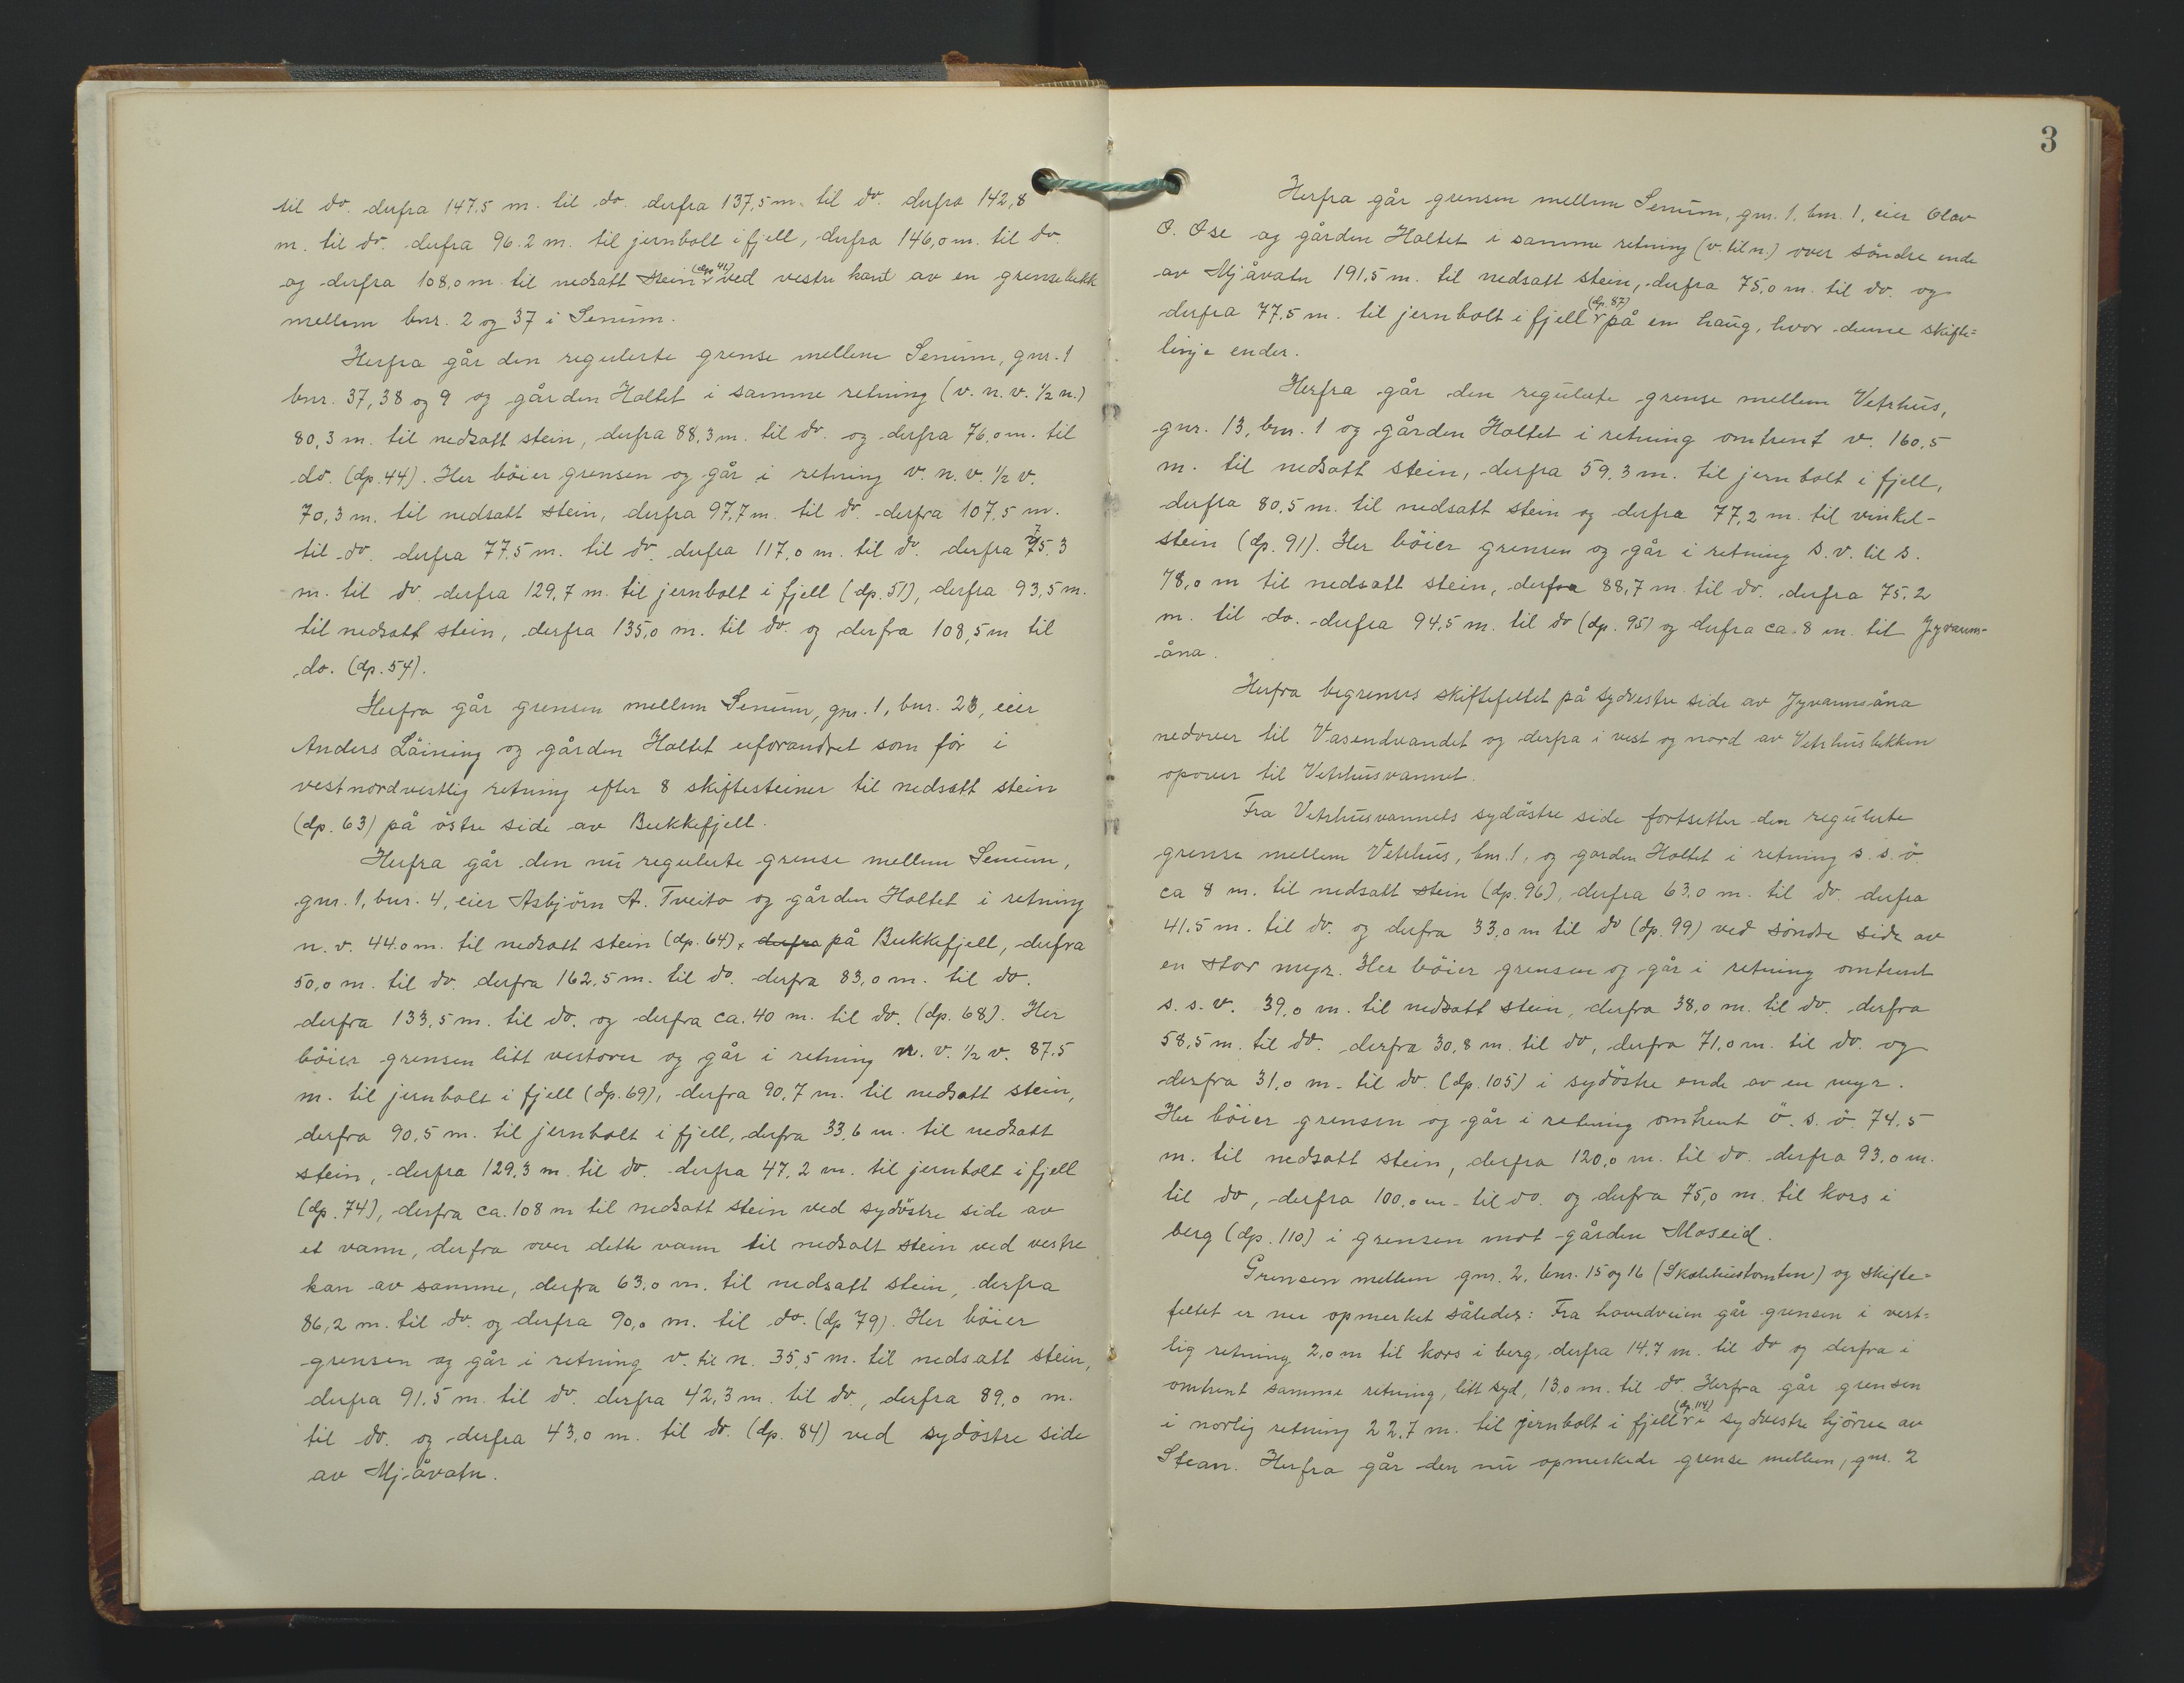 til do. derfra 147.5 m. til do. derfra 137,5 m. til do. derfra 142,8
m. til do. derfra 96.2 m. til jernbolt i fjell, derfra 146,0 m. til do.
og derfra 108,0 m. til nedsatt stein (dp. 41) ved vestre kant av en grensebekk
mellem bnr. 2 og 37 i Senum.
Herfra går den regulerte grense mellem Senum, gnr. 1
bnr. 37, 38 og 9 og gården Holtet i samme retning (v. n. v. 1/2 n.)
80,3 m. til nedsatt stein, derfra 88,3 m. til do. og derfra 76,0 m. til
do. (dp. 44). Her böier grensen og går i retning v. n. v. 1/2 v.
70,3 m. til nedsatt stein, derfra 97,7 m. til do. derfra 107,5 m.
til do. derfra 77.5 m. til do. derfra 117,0 m. til do. derfra 75.3
m. til do. derfra 129,7 m. til jernbolt i fjell (dp. 51), derfra 93,5 m.
til nedsatt stein, derfra 135,0 m. til do. og derfra 108,5 m til
do. (dp. 54).
Herfra går grensen mellem Senum, gnr. 1, bnr. 23, eier
Anders Läining og gården Holtet uforandret som för i
vestnordvestlig retning efter 8 skiftesteiner til nedsatt stein
(dp. 63) på östre side av Bukkefjell.
Herfra går den nu regulerte grense mellem Senum,
gnr. 1, bnr. 4, eier Asbjörn A. Tveito og gården Holtet i retning
n. v. 44.0 m. til nedsatt stein (dp. 64), derfra på Bukkefjell, derfra
50,0 m. til do. derfra 162,5 m. til do. derfra 83,0 m. til do.
derfra 133,5 m. til do. og derfra ca. 40 m. til do. (dp. 68). Her
böier grensen litt vestover og går i retning n. v. 1/2 v. 87.5
m. til jernbolt i fjell (dp. 69), derfra 90,7 m. til nedsatt stein,
derfra 90,5 m. til jernbolt i fjell, derfra 33,6 m. til nedsatt
stein, derfra 129,3 m. til do. derfra 47,2 m. til jernbolt i fjell
(dp. 74), derfra ca. 108 m til nedsatt stein ved sydöstre side av
et vann, derfra over dette vann til nedsatt stein ved vestre
kan av samme, derfra 63,0 m. til nedsatt stein, derfra
86,2 m. til do. og derfra 90,0 m. til do. (dp 79). Her böier
grensen og går i retning v. til n. 35,5 m. til nedsatt stein,
derfra 91.5 m. til do. derfra 42,3 m. til do., derfra 89,0 m.
til do. og derfra 43,0 m. til do. (dp. 84) ved sydöstre side
av Mjåvatn.
3
Herfra går grensen mellem Senum, gnr. 1, bnr. 1, eier Olav
O. Ose og gården Holtet i samme retning (v. til n.) over söndre ende
av Mjåvatn 191,5 m. til nedsatt stein, derfra 75,0 m. til do. og
derfra 77.5 m. til jernbolt i fjell (dp. 87) på en haug, hvor denne skifte=
linje ender.
Herfra går den regulerte grense mellem Vetrhus,
gnr. 13, bnr. 1 og gården Holtet i retning omtrent v. 160,5
m. til nedsatt stein, derfra 59,3 m. til jernbolt i fjell,
derfra 80,5 m. til nedsatt stein og derfra 77,2 m. til vinkel-
stein (dp. 91). Her böier grensen og går i retning s. v. til s.
78,0 m til nedsatt stein, derfra 88,7 m. til do. derfra 75,2
m. til do. derfra 94,5 m. til do (dp. 95) og derfra ca. 8 m. til Jyvanns-
åna.
Herfra begrenses skiftefeltet på sydvestre side av Jyvannsåna
nedover til Vasendvandet og derfra i vest og nord av Vetrhusbekken
opover til Vetrhusvannet.
Fra Vetrhusvannets sydöstre side fortsetter den regulerte
grense mellem Vetrhus, bnr. 1, og garden Holtet i retning s. s. ö.
ca 8 m. til nedsatt stein (dp. 96), derfra 63,0 m. til do. derfra
41,5 m. til do. og derfra 33,0 m til do (dp. 99) ved söndre side av
en stor myr. Her böier grensen og går i retning omtrent
s. s. v. 39,0 m. til nedsatt stein, derfra 38,0 m. til do. derfra
58,5 m. til do. derfra 30,8 m. til do, derfra 71,0 m. til do. og
derfra 31,0 m. til do. (dp. 105) i sydöstre ende av en myr.
Her böier grensen og går i retning omtrent ö. s. ö. 74.5
m. til nedsatt stein, derfra 120,0 m. til do. derfra 93.0 m.
til do, derfra 100,0 m. til do. og derfra 75,0 m. til kors i
berg (dp. 110) i grensen mot gården Moseid.
Grensen mellem gnr. 2, bnr. 15 og 16 (Skolehustomten) og skifte=
feltet er nu opmerket således: Fra hovedveien går grensen i vest=
lig retning 2,0 m til kors i berg, derfra 14,7 m. til do og derfra i
omtrent samme retning, litt syd, 13,0 m. til do. Herfra går grensen
i norlig retning 22,7 m. til jernbolt i fjell (dp. 114) i sydvestre hjörne av
Stean. Herfra går den nu opmerkede grense mellem, gnr. 2